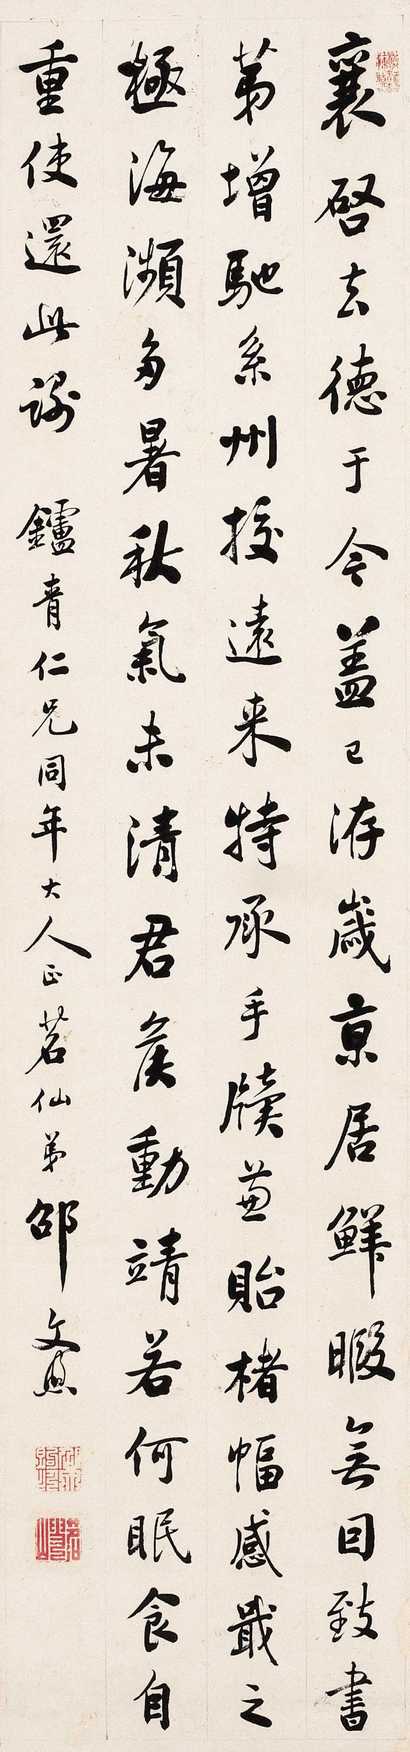 襄啓去德于今盖已洊歲京居鮮暇無因致書
苐增馳系州挍遠来特承手牘兼貽楮幅感戢之
極海濒多暑秋氣未清君侯動靖若何眠食自
重使還此謝 鑪青仁兄同年大人正茗仙弟邵文煦